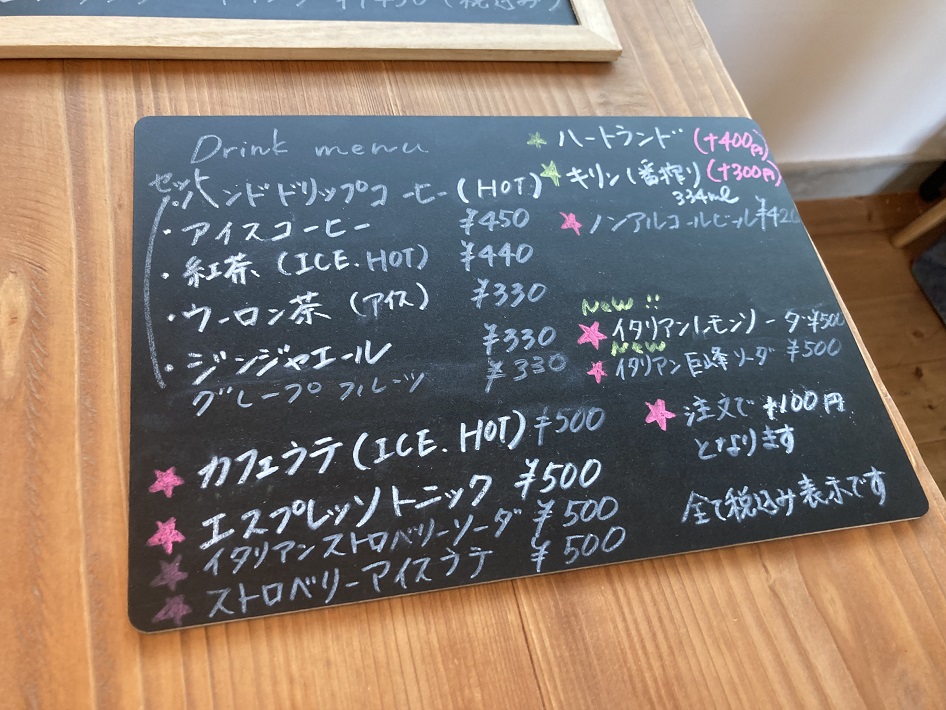 ¥1,450 (税込み)
Drink menu
セット
ハンドドリップコーヒー (HOT)
・アイスコーヒー ¥450
・紅茶 (ICE.HOT) ¥440
・ウーロン茶 (アイス) ¥330
・ジンジャエール ¥330
グレープフルーツ ¥330
★ カフェラテ (ICE.HOT) ¥500
★ エスプレッソトニック ¥500
★ イタリアンストロベリーソーダ ¥500
★ ストロベリーアイスラテ ¥500
★ ハートランド (+400円)
★ キリン一番搾り (+300円)
334ml
★ ノンアルコールビール ¥420
New !!
★ イタリアンレモンソーダ ¥500
New
★ イタリアン巨峰ソーダ ¥500
★ 注文で+100円
となります
全て税込み表示です